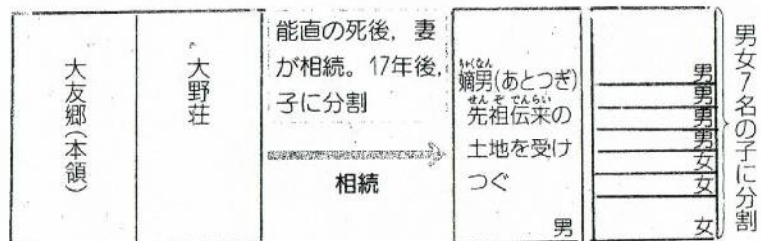 大友郷(本領)
大野荘
能直の死後,妻
が相続。17年後,
子に分割
相続
ちゃくなん
嫡男(あとつぎ)
せんぞでんらい
先祖伝来の
土地を受け
つぐ
男
男
男
男
男
女
女
女
男女7名の子に分割